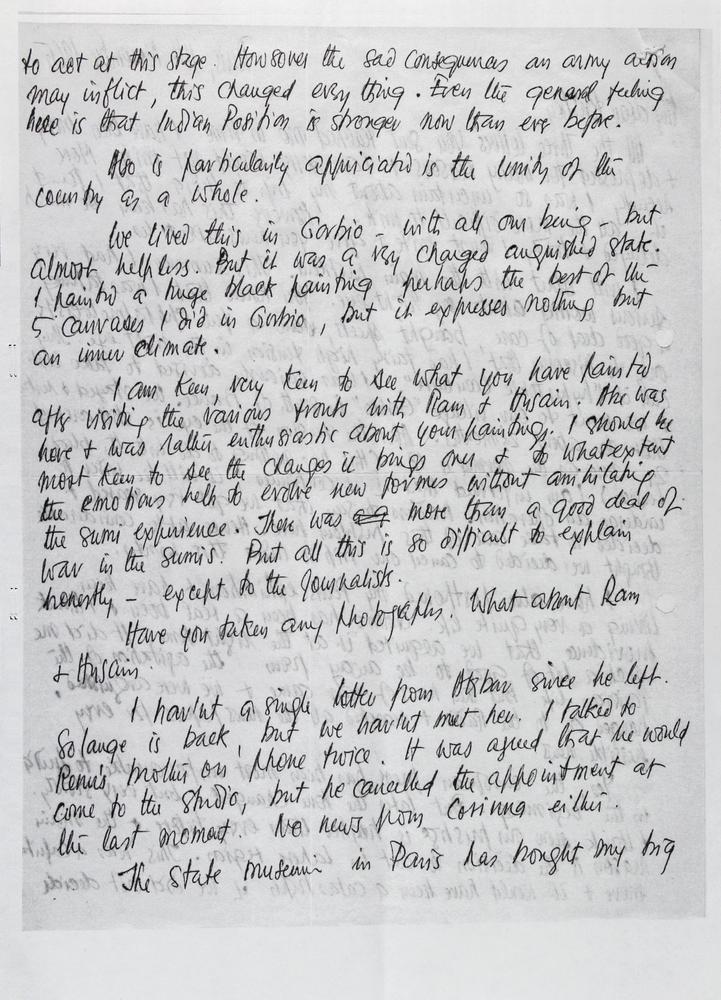 to act at this stage. Howsover the sad consequences an army action
may inflict, this changed every thing. Even the general feeling
here is that Indian Position is stronger now than ever before.
Also is particularily appriciatd is the Unity of the
country as a whole.
We lived this in Gorbio - with all our being - but
almost helpless. But it was a very changed anguished state.
I paintd a huge black painting perhaps the best of the
5 canvases I did in Gorbio, but it expresses nothing but
an inner climate.
I am Keen, very Keen to see what you have paintd
after visiting the various fronts with Ram & Husain. was
here & was rather enthusiastic about your paintings. I should be
most Keen to see the changes it brings over & to what extent
the emotions help to evolve new formes without anihilating
the sumi experience. There was more than a good deal of
war in the sumis. But all this is so difficult to explain
honestly - except to the Journalists.
Have you taken any photographs. What about Ram
& Husain.
I hav'nt a single letter from Akbar since he left.
Solange is back, but we hav'nt met her. I talked to
Renu's brother on phone twice. It was agreed that he would
come to the studio, but he cancelled the appointment at
the last moment. No news from Corinna either.
The State museum in Paris has bought my big